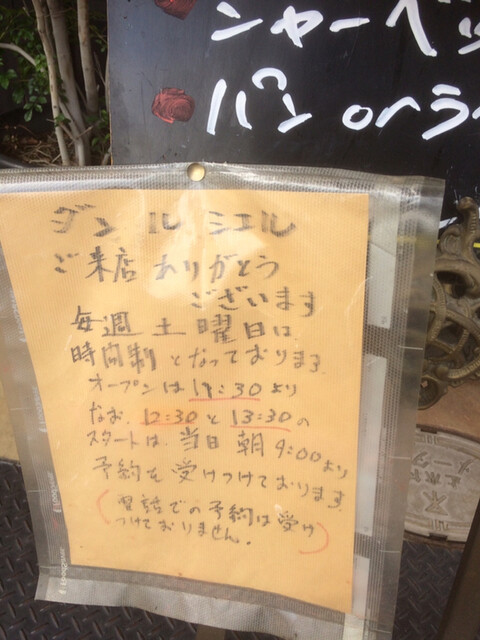 シャーベッ
パン orラ
ダン ル シエル
ご来店 ありがとう
ございます
毎週 土 曜日は
時間制 となっております
オープンは 11:30 より
なお、12:30 と 13:30 の
スタートは、当日 朝 9:00 より
予約を 受けつけております
(電話での予約は受け
つけておりません。)